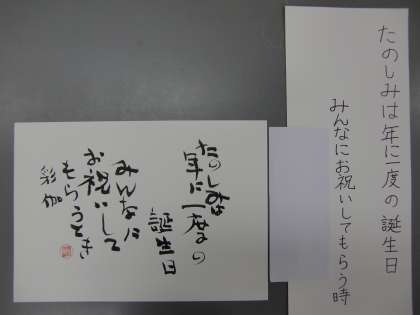 たのしみは年に一度の誕生日
みんなにお祝いしてもらう時
たのしみは
年に一度の
誕生日
みんなに
お祝いして
もらうとき
彩伽